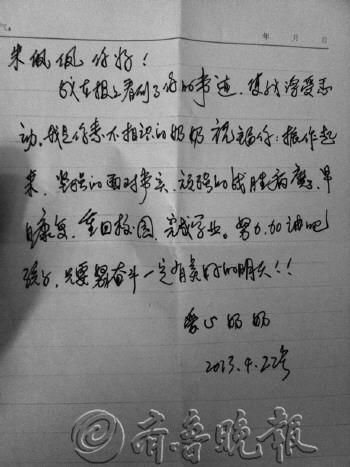 年 月 日
朱佩佩你好！
我在报上看到了你的事迹，使我深受感
动，我是你素不相识的奶奶祝福你：振作起
来，坚强的面对事实，顽强的战胜病魔，早
日康复，重回校园，完成学业。努力加油吧
孩子，只要奋斗一定有美好的明天！！
爱心奶奶
2013.4.22号
齐鲁晚报